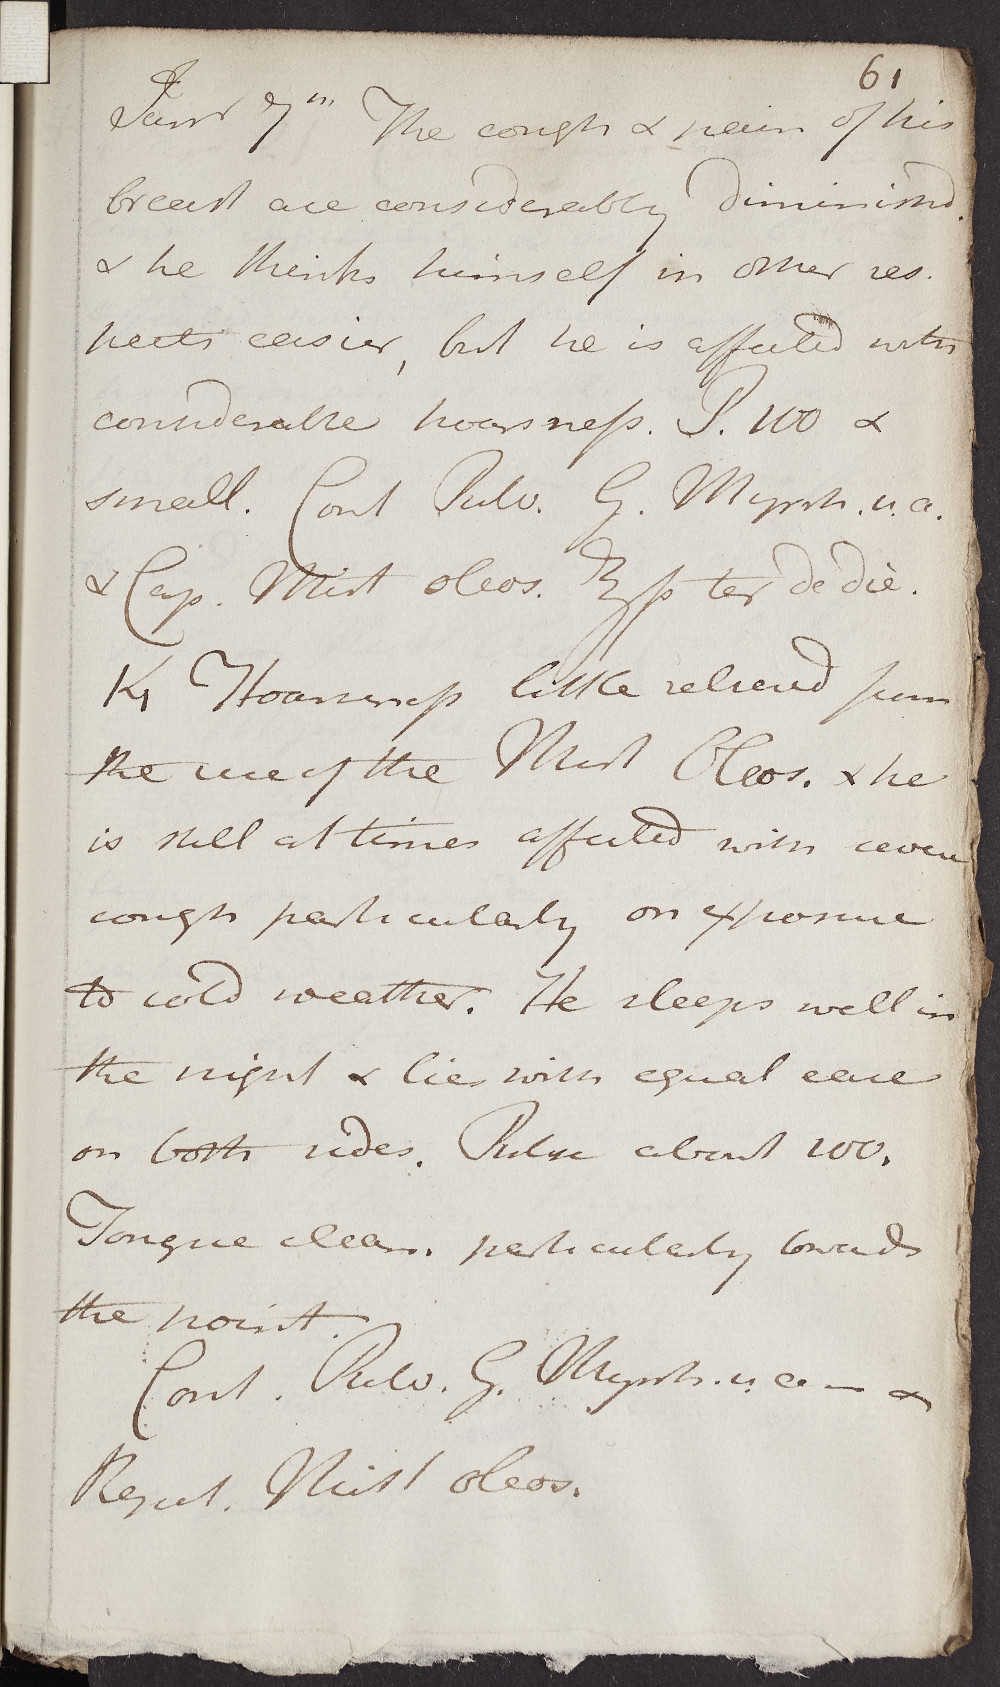 61
Janr 7th The cough & pain of his
breast are considerably diminisd.
& he thinks himself in other res.
pects easier, but he is affected with
considerable hoarsness. P. 100 &
small. Cont Pulv. G. Myrrh. u. a.
& Cap. Mist oleos. ℥ss ter de die.
14 Hoarseness little relieved from
the use of the Mist Oleos. & he
is still at times affected with severe
cough particularly on exposure
to cold weather. He sleeps well in
the night & lies with equal ease
on both sides. Pulse about 100.
Tongue clean. particularly towards
the point.
Cont. Pulv. G. Myrrh. u. a — &
Repet. Mist oleos.